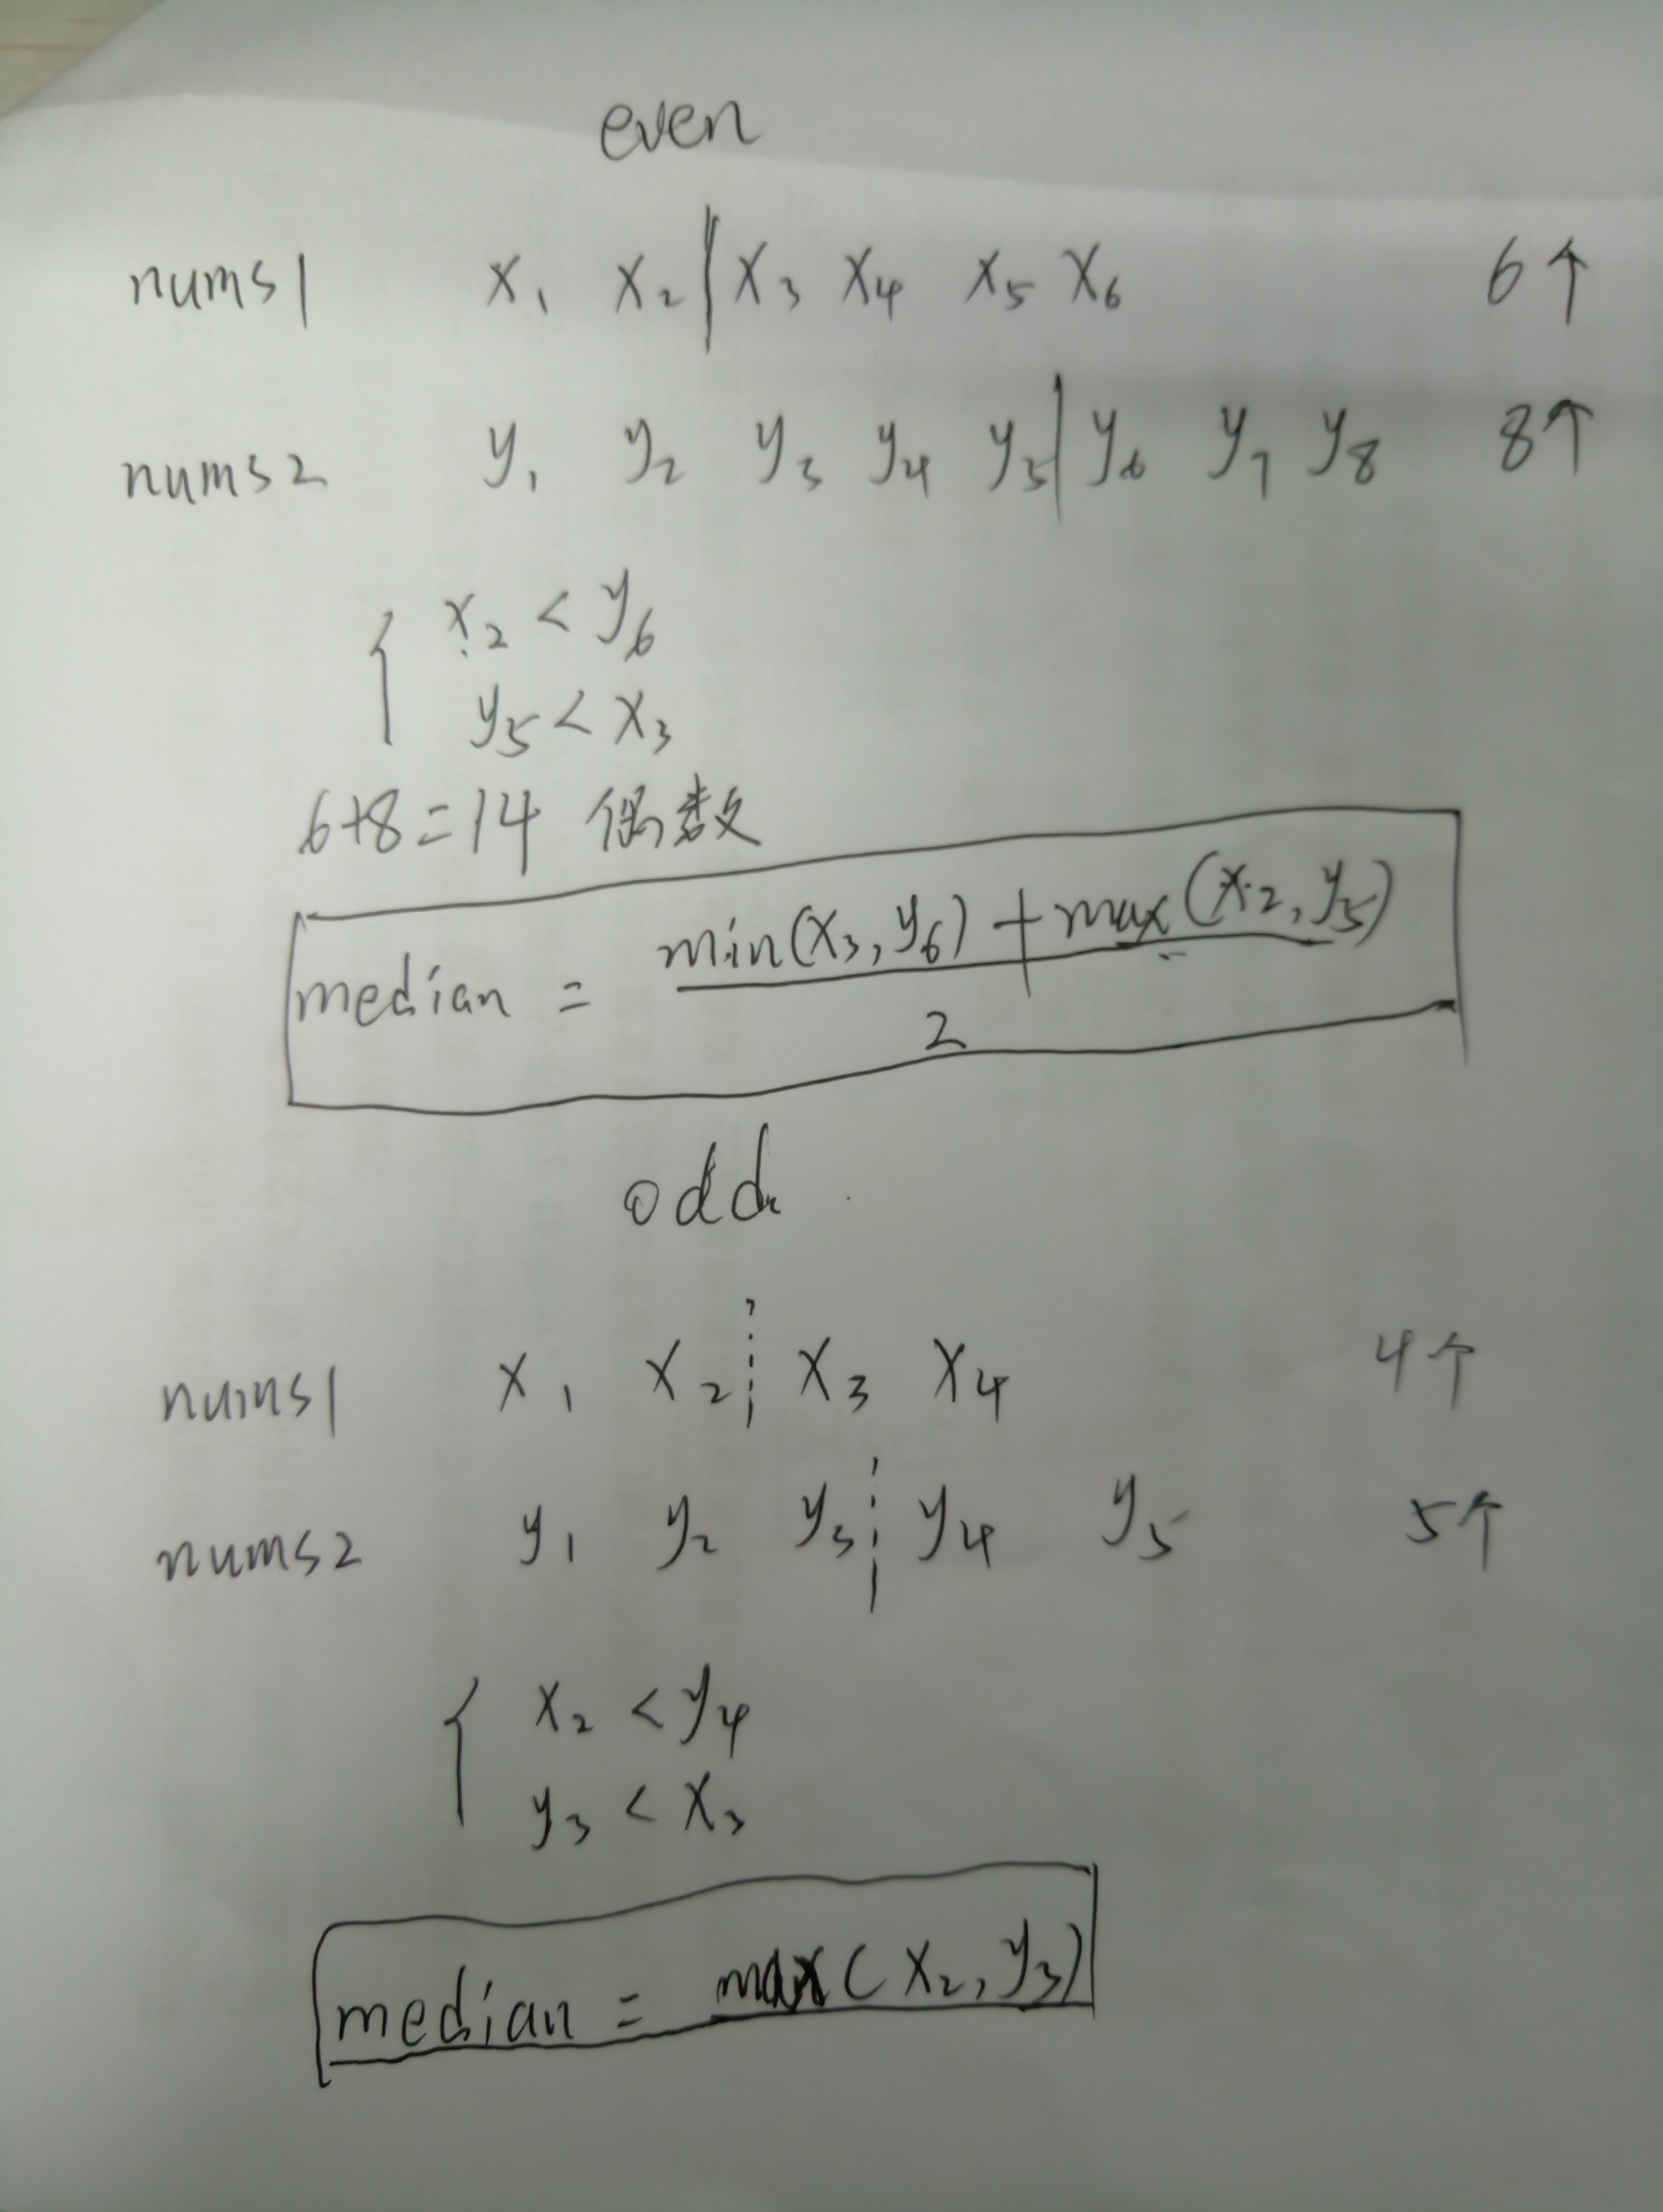 even
nums1 x₁ x₂ | x₃ x₄ x₅ x₆ 6个
nums2 y₁ y₂ y₃ y₄ y₅ | y₆ y₇ y₈ 8个
{ x₂ < y₆
y₅ < x₃
6+8=14 偶数
median = (min(x₃, y₆) + max(x₂, y₅)) / 2
odd
nums1 x₁ x₂ ┆ x₃ x₄ 4个
nums2 y₁ y₂ y₃ ┆ y₄ y₅ 5个
{ x₂ < y₄
y₃ < x₃
median = max(x₂, y₃)